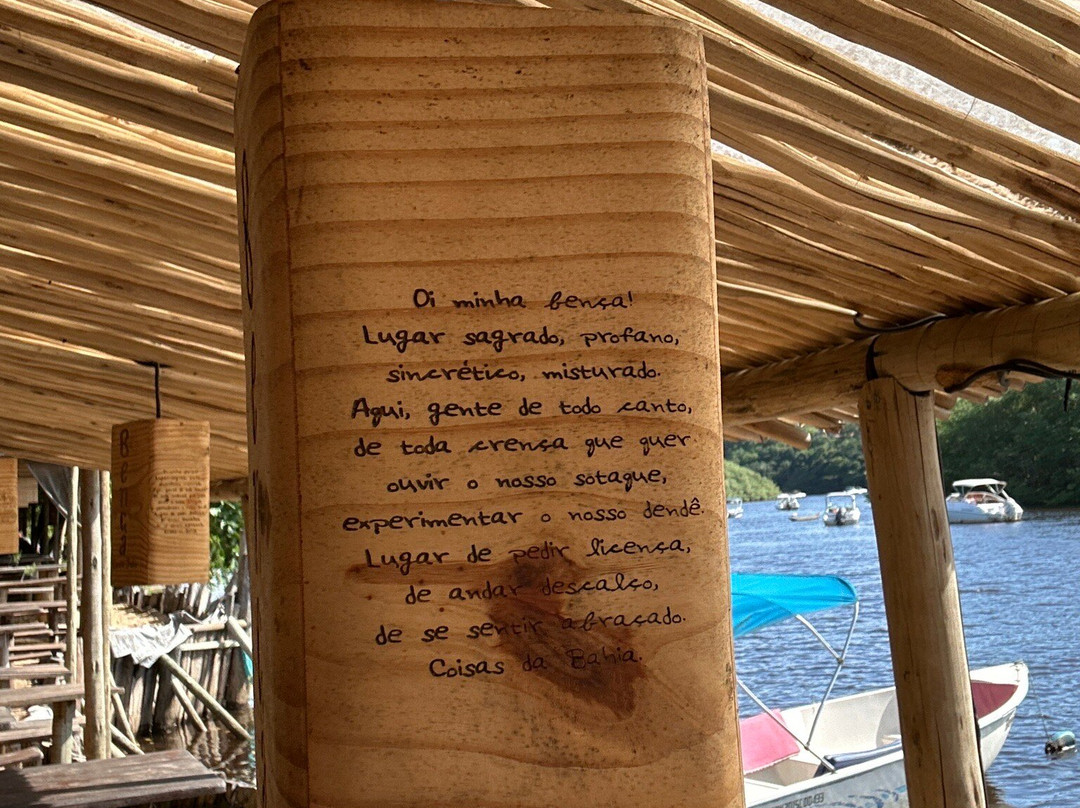 Oi minha bença!
Lugar sagrado, profano,
sincrético, misturado.
Aqui, gente de todo canto,
de toda crença que quer
ouvir o nosso sotaque,
experimentar o nosso dendê.
Lugar de pedir licença,
de andar descalço,
de se sentir abraçado.
Coisas da Bahia.